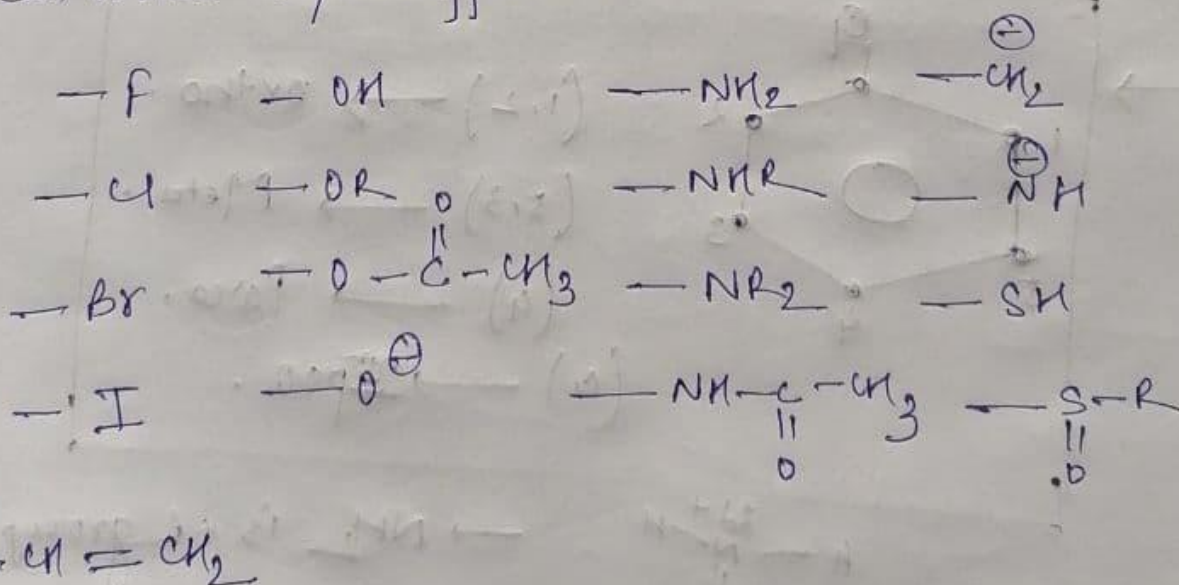 — F — OH — NH₂ — CH₂⊖
— Cl — OR — NHR — NH⊖
— Br — O — C(=O) — CH₃ — NR₂ — SH
— I — O⊖ — NH — C(=O) — CH₃ — S(=O) — R
- CH = CH₂